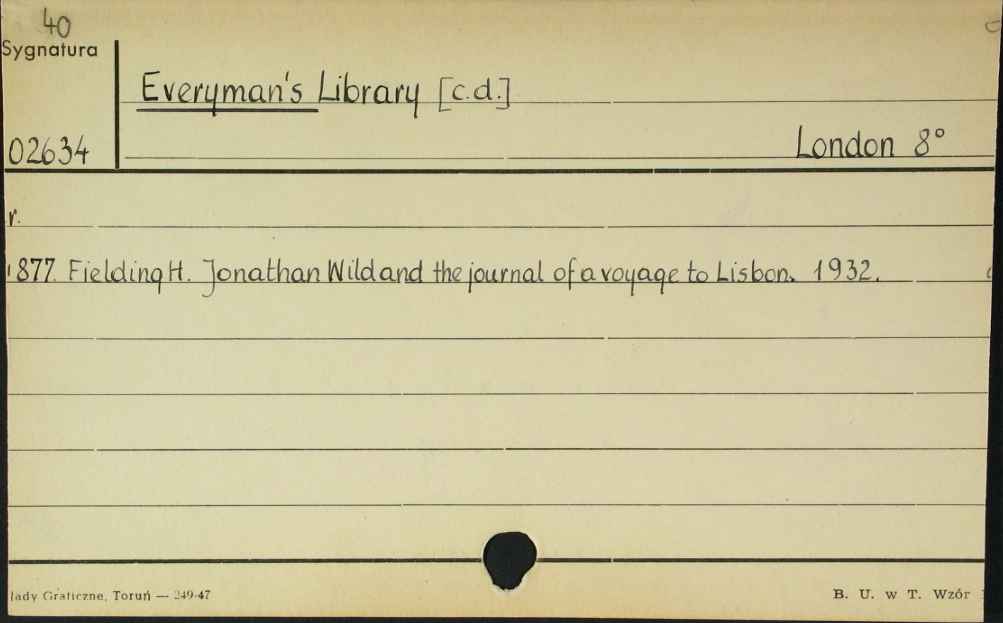 40
Sygnatura
Everyman's Library [c.d.]
02634
London 8°
r.
877. Fielding H. Jonathan Wild and the journal of a voyage to Lisbon. 1932.
łady Graficzne, Toruń — 249-47
B. U. w T. Wzór